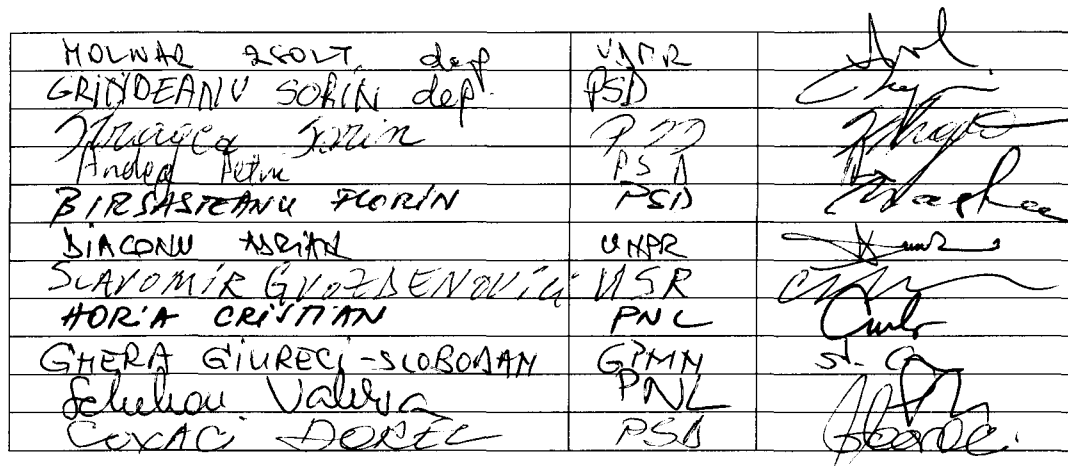 MOLNAR ZSOLT dep UDMR
GRINDEANU SORIN dep. PSD
Sorin PSD
Andea Petru PSD
BIRSASTEANU FLORIN PSD
DIACONU ADRIAN UNPR
SLAVOMIR GVOZDENOVICI USR
HORIA CRISTIAN PNL
GHERA GIURECI-SLOBODAN GPMN
Schelean Valeria PNL
COVACI DOREL PSD